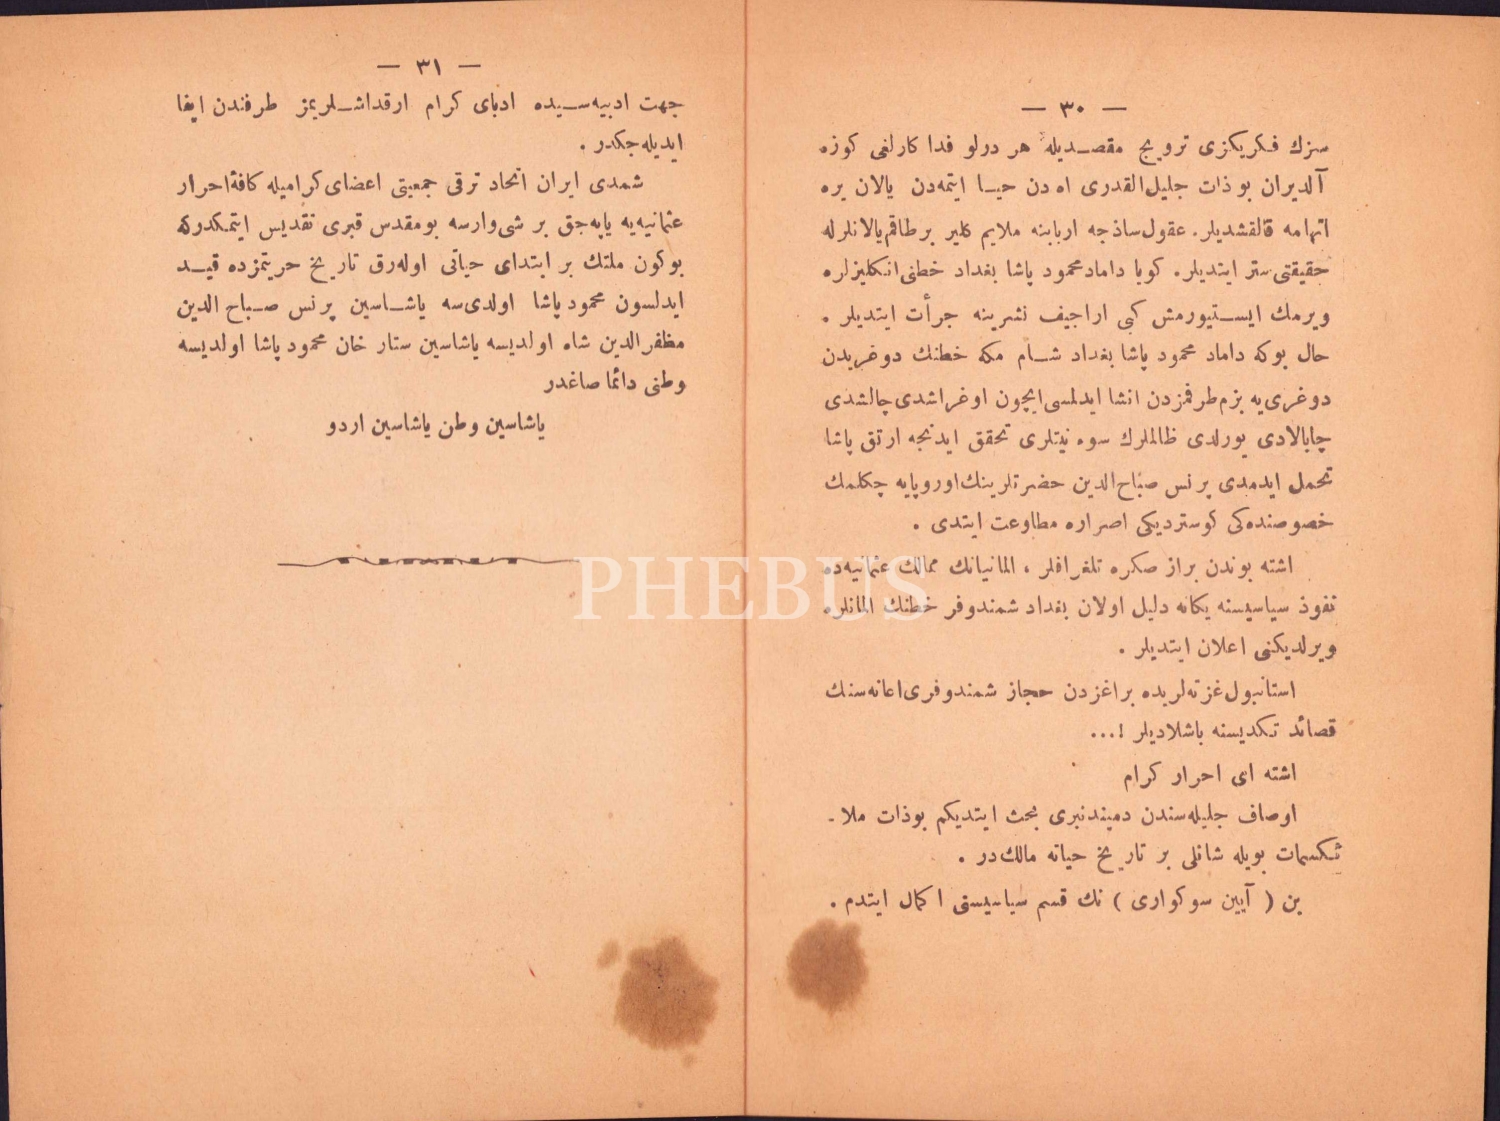 — ٣٠ —
سزك فكريكزى ترويج مقصديله هر درلو فدا كارلغى كوزه
آلديران بو ذات جليل‌القدرى اه دن حيا ايتمه‌دن يالان يره
اتهامه قالقشديلر. عقول‌ساذجه اربابنه ملايم كلير برطاقم يالانلرله
حقيقتى ستر ايتديلر. كويا داماد محمود پاشا بغداد خطنى انكليزلره
ويرمك ايستيورمش كبى اراجيف نشرينه جرأت ايتديلر .
حال بوكه داماد محمود پاشا بغداد شام مكه خطنك دوغريدن
دوغرى‌يه بزم طرفمزدن انشا ايدلمسى ايچون اوغراشدى چالشدى
چابالادى يورلدى ظالملرك سوء نيتلرى تحقق ايدنجه ارتق پاشا
تحمل ايدمدى پرنس صباح‌الدين حضرتلرينك اوروپايه چكلمك
خصوصنده‌كى كوسترديكى اصراره مطاوعت ايتدى .
اشته بوندن براز صكره تلغرافلر ، المانيانك ممالك عثمانيه‌ده
نفوذ سياسيسنه يكانه دليل اولان بغداد شمندوفر خطنك المانلره
ويرلديكنى اعلان ايتديلر .
استانبول غزته‌لريده براغزدن حجاز شمندوفرى اعانه‌سنك
قصائد تكديسنه باشلاديلر !...
اشته اى احرار كرام
اوصاف جليله‌سندن دميندنبرى بحث ايتديكم بوذات ملا-
ئكسمات بويله شانلى بر تاريخ حياته مالك‌در .
بن ( آيين سوكوارى ) نك قسم سياسيسنى اكمال ايتدم .
— ٣١ —
جهت ادبيه‌سيده ادباى كرام ارقداشلريمز طرفندن ايفا
ايديله‌جكدر .
شمدى ايران اتحاد ترقى جمعيتى اعضاى كراميله كافۀ احرار
عثمانيه‌يه ياپه‌جق بر شى وارسه بو مقدس قبرى تقديس ايتمكدركه
بوكون ملتك بر ابتداى حياتى اوله‌رق تاريخ حريتمزده قيد
ايدلسون محمود پاشا اولدى‌سه ياشاسين پرنس صباح الدين
مظفرالدين شاه اولديسه ياشاسين ستار خان محمود پاشا اولديسه
وطنى دائما صاغدر
ياشاسين وطن ياشاسين اردو
PHEBUS